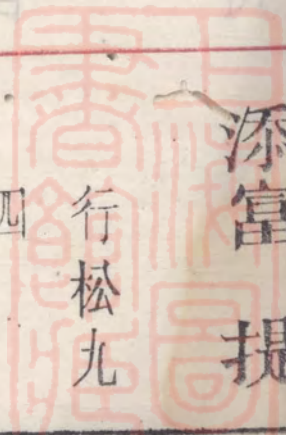 添富 提
行松九
四